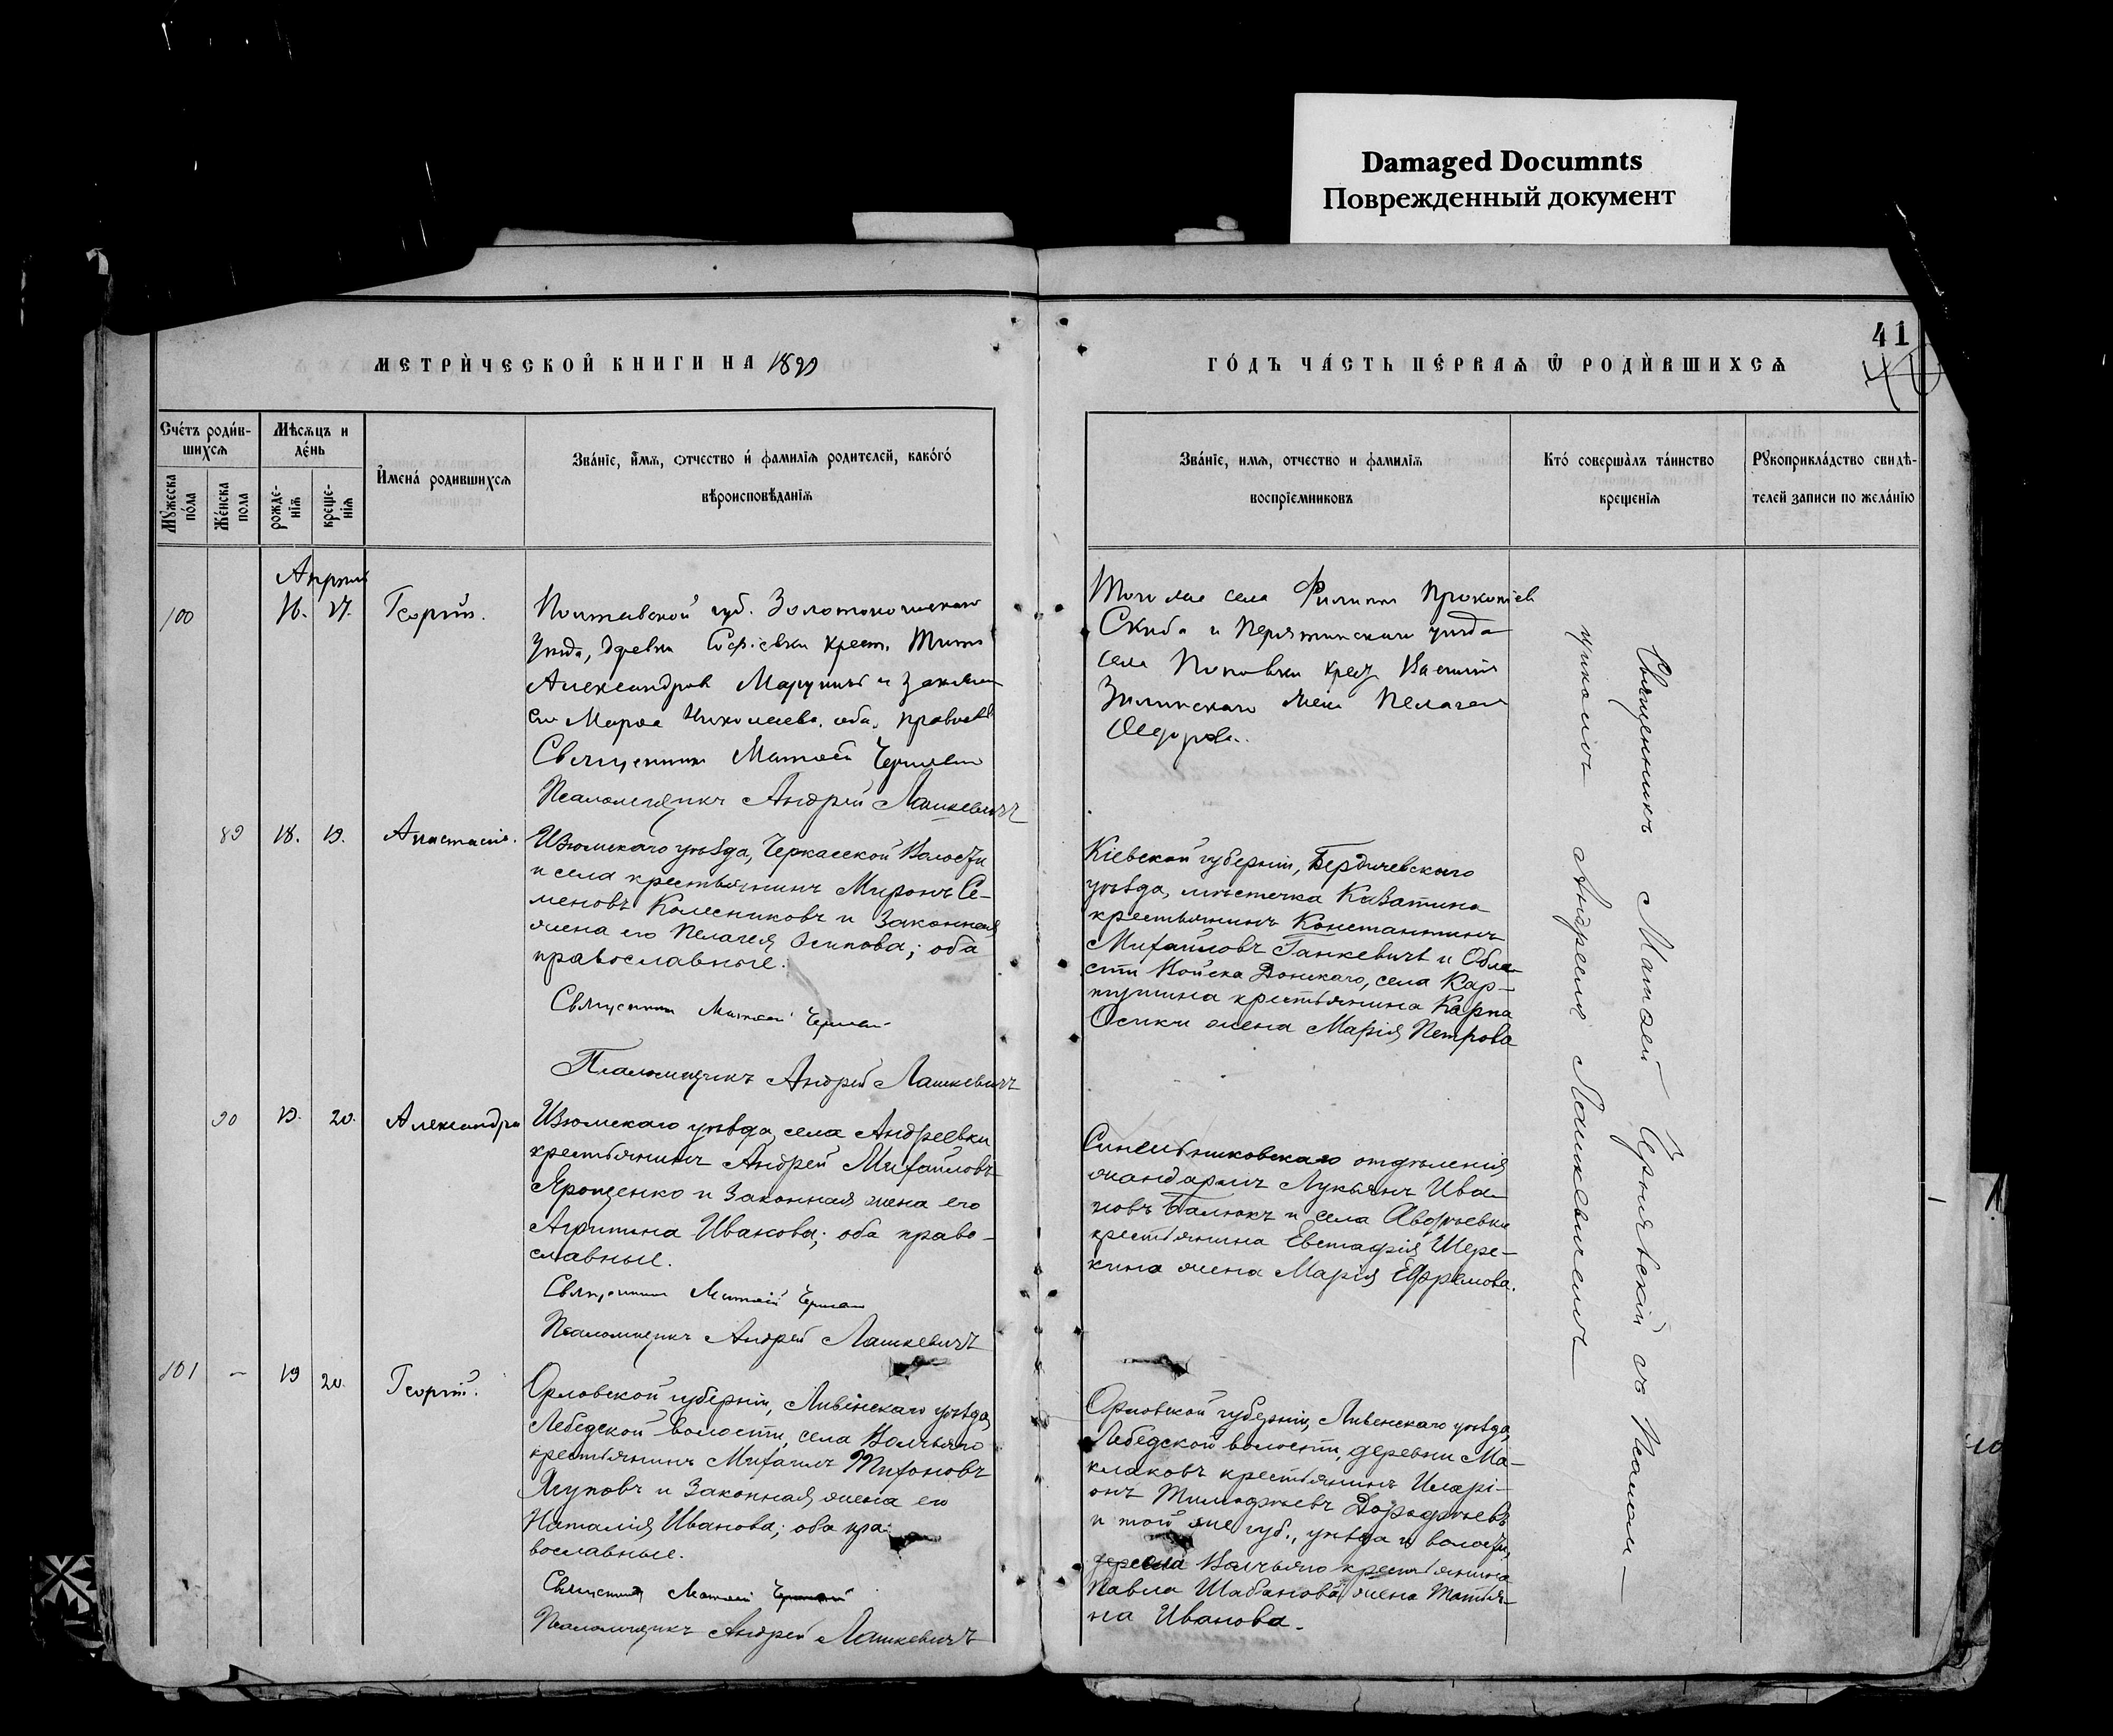 Damaged Documnts
Поврежденный документ
41
МЕТРИ́ЧЕСКОЙ КНИГИ НА 1899
ГО́ДЪ ЧА́СТЬ ПЕ́РВАѦ Ѿ РОДИ́ВШИХСѦ
Счéтъ роди́в-
шихсѧ
Мѣсѧцъ и
дéнь
Мꙋ́жеска
пóла
Жéнска
пола
рождé-
нїѧ
креще-
нїѧ
И҆менá родившихсѧ
Звáнїе, и҆́мѧ, ѻтчество и҆ фамилїѧ родителей, какóгó
вѣроисповѣ́данїѧ
Звáнїе, имѧ, отчество и фамилїѧ
воспрїемниковъ
Ктó совершáлъ тáинство
крещенїѧ
Рꙋкоприклáдство свидѣ-
телей записи по желáнїю
100
16. 17.
Георгій.
Полтавской губ. Золотоношскаго
уѣзда, деревни Софіевки крест. Титъ
Александров
его Марѳа Николаева, оба православ
Священникъ Матѳей
Псаломщикъ Андрей Лашкевичъ
Того же села Филиппъ Прокопіев
Скиба и Пирятинскаго уѣзда
села Поповки крест Василія
жена Пелагея
Ѳедорова.
89 18. 19.
Анастасія.
Изюмскаго уѣзда, Черкасской Волости
и села крестьянинъ Миронъ Се-
меновъ Колесниковъ и Законная
жена его Пелагея Осипова; оба
православные.
Священникъ Матѳей
Псаломщикъ Андрей Лашкевичъ
Кіевской губерніи, Бердичевскаго
уѣзда, мѣстечка Казатина
крестьянинъ Константинъ
Михайловъ Ганкевичъ и Обла-
сти Войска Донскаго, села Кар-
пушина крестьянина Карпа
Осики жена Марія Петрова
90 19. 20.
Александра
Изюмскаго уѣзда, села Андреевки
крестьянинъ Андрей Михайловъ
Ярощенко и Законная жена его
Агрипина Иванова; оба право-
славные.
Священникъ Матѳей
Псаломщикъ Андрей Лашкевичъ
Синельниковскаго отдѣленія
жандармъ Лукьянъ Ива-
новъ Балюкъ и села
крестьянина Евстафія Шере-
кина жена Марія Ефремова.
101 – 19 20.
Георгій.
Орловской губерніи, Ливенскаго уѣзда,
Лебедской волости, села Волчьяго
крестьянинъ Михаилъ Тихоновъ
Ягуповъ и Законная жена его
Наталія Иванова; оба пра-
вославные.
Священникъ Матѳей
Псаломщикъ Андрей Лашкевичъ
Орловской губерніи, Ливенскаго уѣзда,
Лебедской волости, деревни Ма-
клаковъ крестьянинъ Иларі-
онъ Тимофѣевъ Дорофѣевъ
и той же губ., уѣзда и волости,
села Волчьяго крестьянина
Павла Шабанова жена Татья-
на Иванова.
Священникъ Матѳей Чернявскій съ Псалом-
щикомъ Андреемъ Лашкевичемъ